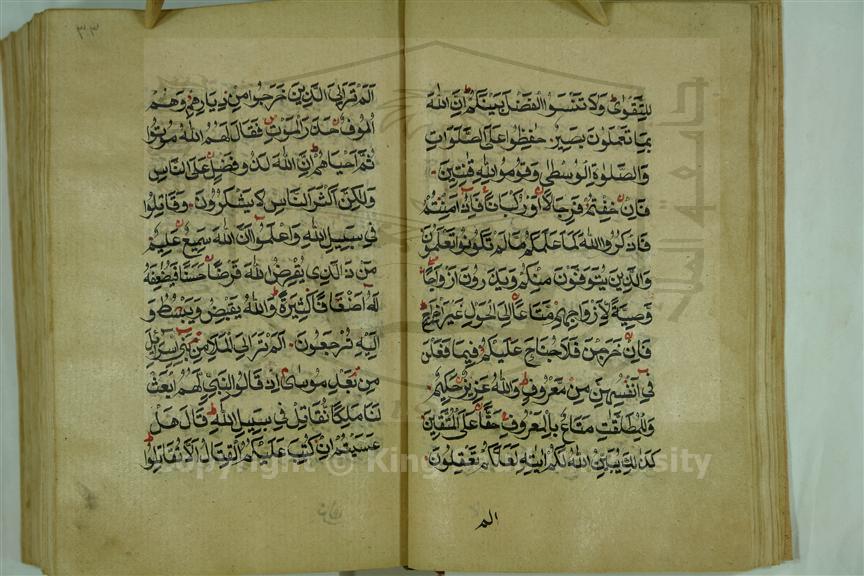 للتقوى ولا تنسوا الفضل بينكم ان الله
بما تعملون بصير حفظوا على الصلوات
والصلوة الوسطى وقوموا لله قنتين
فان خفتم فرجالا او ركبانا فاذا امنتم
فاذكروا الله كما علمكم ما لم تكونوا تعلمون
والذين يتوفون منكم ويذرون ازواجا
وصية لازواجهم متاعا الى الحول غير اخراج
فان خرجن فلا جناح عليكم فيما فعلن
في انفسهن من معروف والله عزيز حكيم
وللمطلقت متاع بالمعروف حقا على المتقين
كذلك يبين الله لكم ايته لعلكم تعقلون
الم
٣٣
الم تر الى الذين خرجوا من ديارهم وهم
الوف حذر الموت فقال لهم الله موتوا
ثم احياهم ان الله لذو فضل على الناس
ولكن اكثر الناس لا يشكرون وقاتلوا
في سبيل الله واعلموا ان الله سميع عليم
من ذا الذي يقرض الله قرضا حسنا فيضعفه
له اضعافا كثيرة والله يقبض ويبسط و
اليه ترجعون الم تر الى الملا من بني اسرائيل
من بعد موسى اذ قالوا لنبي لهم ابعث
لنا ملكا نقاتل في سبيل الله قال هل
عسيتم ان كتب عليكم القتال الا تقاتلوا
جامعة الملك
Copyright © King University